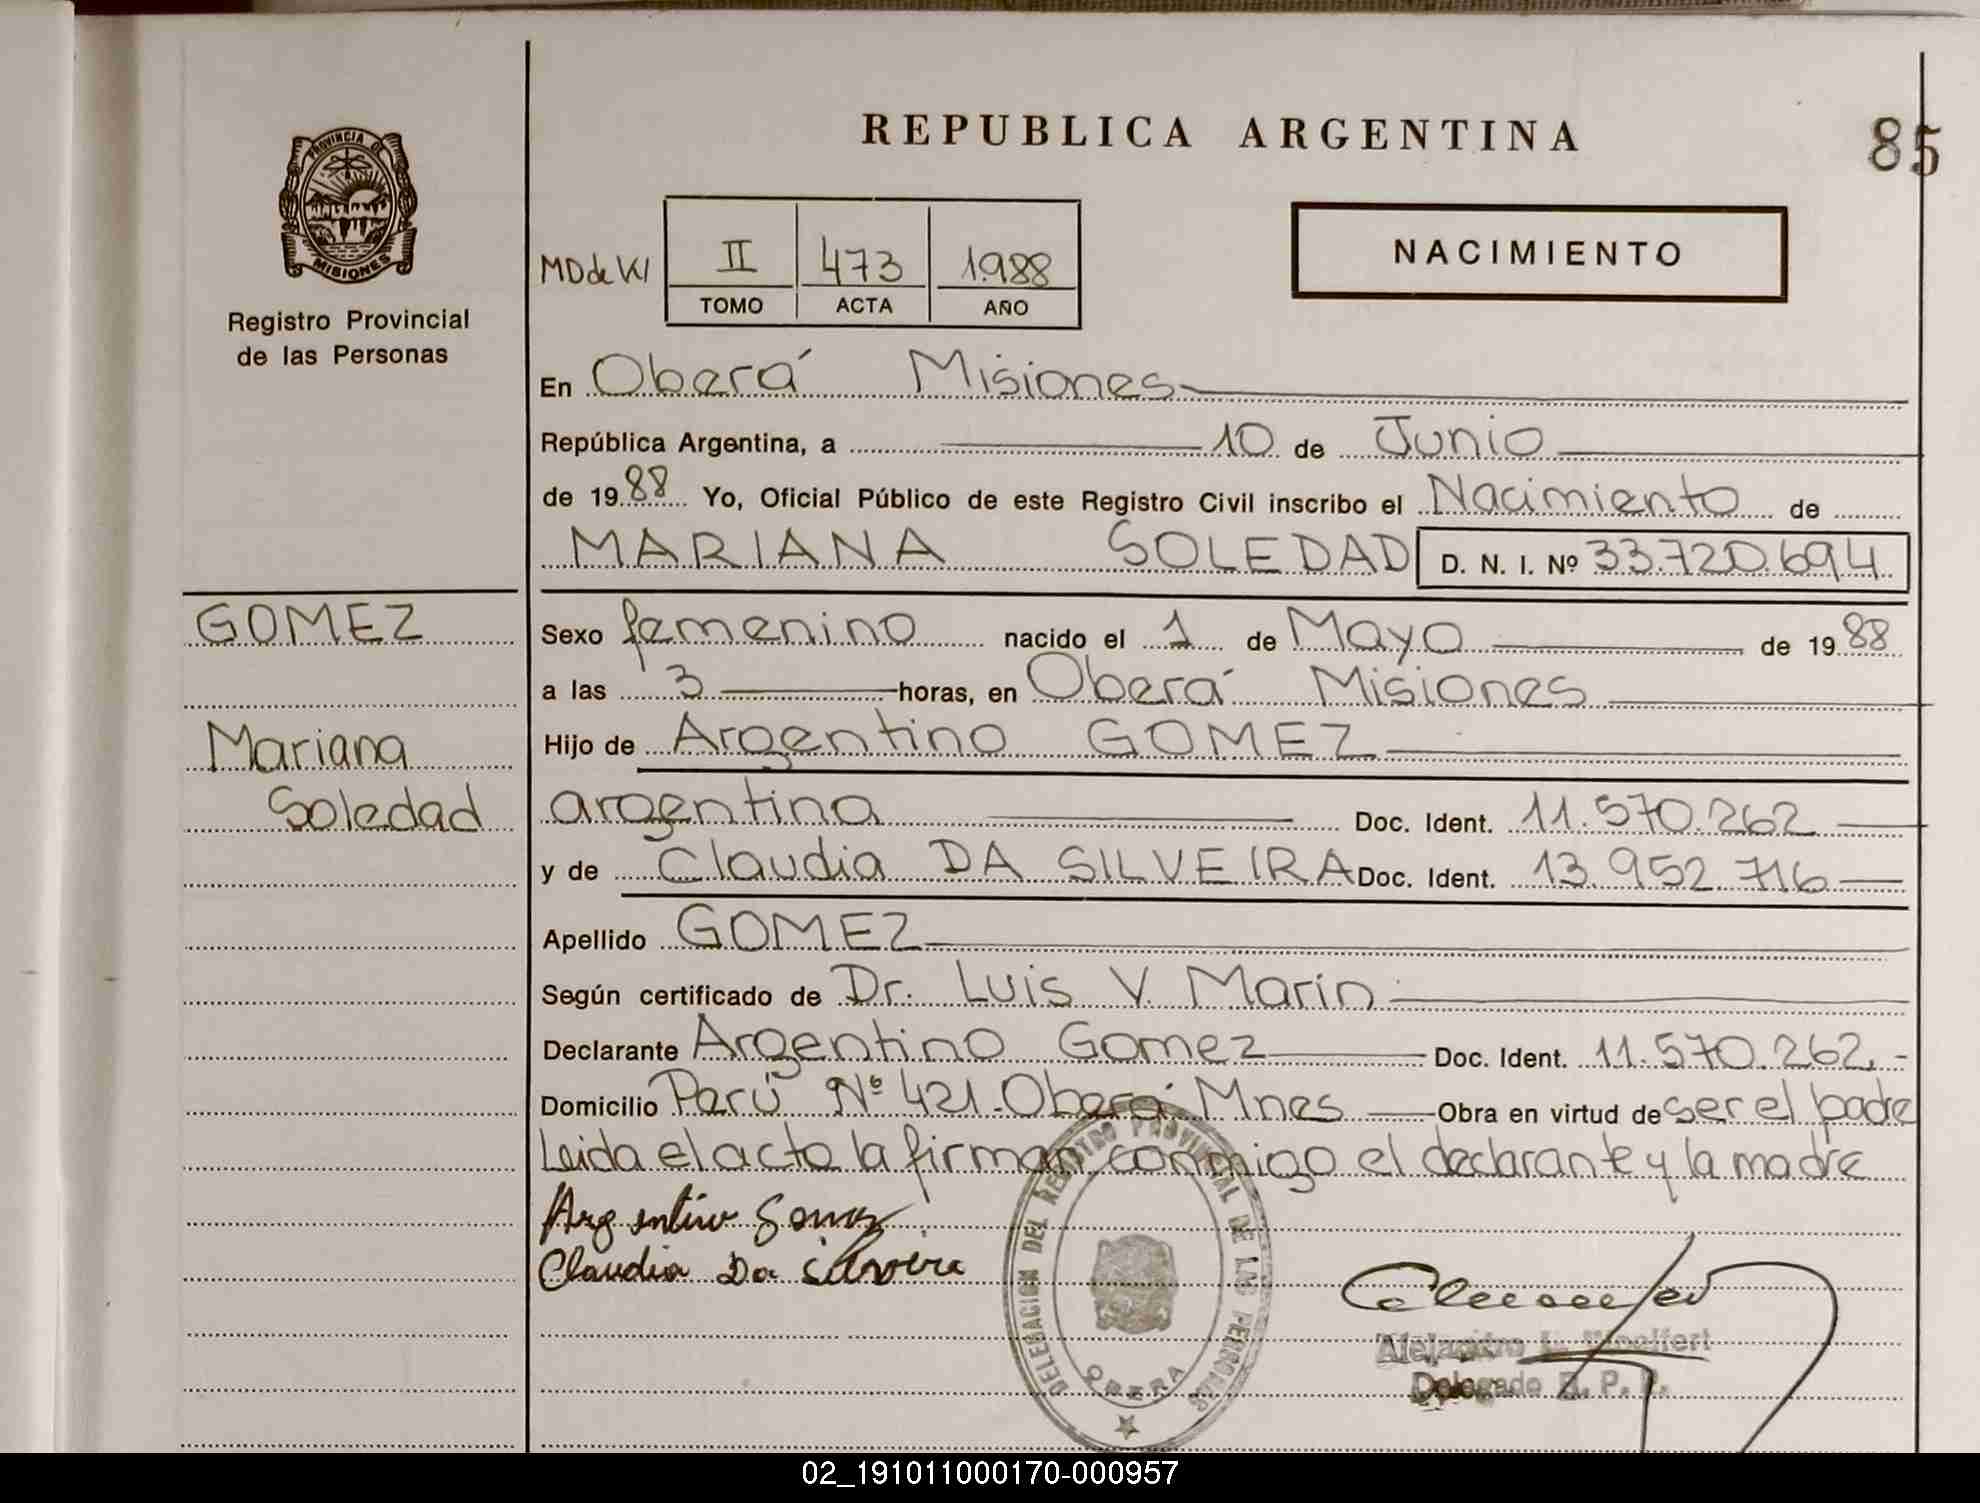 REPUBLICA ARGENTINA
85
PROVINCIA DE
MISIONES
Registro Provincial
de las Personas
II 473 1988
TOMO ACTA AÑO
NACIMIENTO
En Oberá Misiones
República Argentina, a 10 de Junio
de 1988 Yo, Oficial Público de este Registro Civil inscribo el Nacimiento de
MARIANA SOLEDAD D. N. I. Nº 33.720.694
GOMEZ
Mariana
Soledad
Sexo femenino nacido el 1 de Mayo de 1988
a las 3 horas, en Oberá Misiones
Hijo de Argentino GOMEZ
argentina Doc. Ident. 11.570.262
y de Claudia DA SILVEIRA Doc. Ident. 13.952.716
Apellido GOMEZ
Según certificado de Dr. Luis V. Marin
Declarante Argentino Gomez Doc. Ident. 11.570.262.-
Domicilio Perú Nº 421-Oberá-Mnes Obra en virtud de ser el padre
Leida el acta la firman conmigo el declarante y la madre
Argentino Gomez
Claudia Da Silveira
DELEGACION DEL REGISTRO PROVINCIAL DE LAS PERSONAS
OBERA
Alejandro
Delegado R. P. P.
02_191011000170-000957